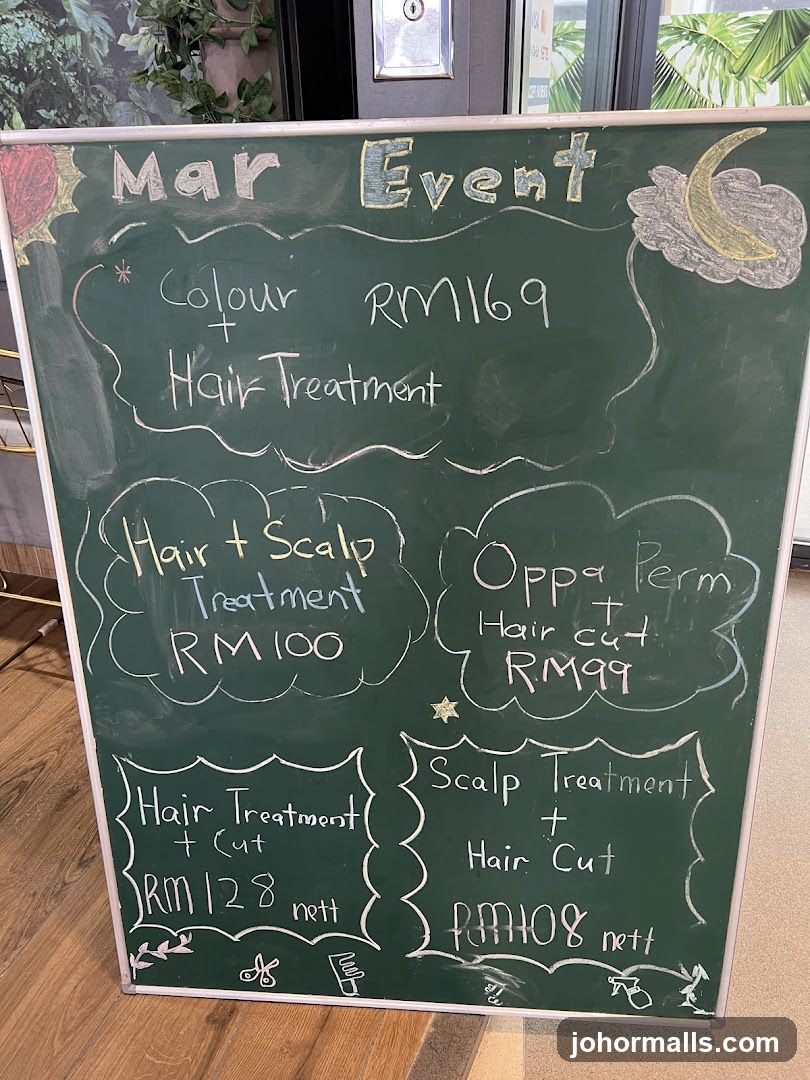 Mar Event
Colour RM169
+
Hair Treatment
Hair + Scalp
Treatment
RM100
Oppa Perm
+
Hair cut
RM99
Hair Treatment
+ Cut
RM128 nett
Scalp Treatment
+
Hair Cut
RM108 nett
johormalls.com